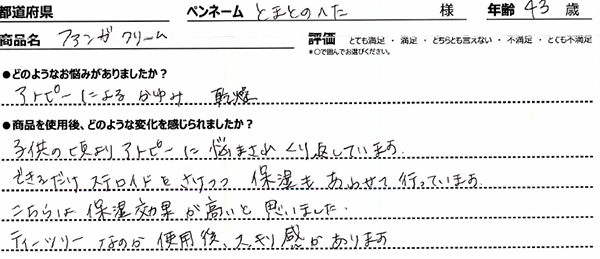 都道府県 ペンネーム とまとのへた 様 年齢 43 歳
商品名 ファンガクリーム 評価 とても満足 ・ 満足 ・ どちらとも言えない ・ 不満足 ・ とても不満足
*○で囲んでお選びください。
●どのようなお悩みがありましたか?
アトピーによるかゆみ 乾燥
●商品を使用後、どのような変化を感じられましたか?
子供の頃よりアトピーに悩まされくり返しています。
できるだけステロイドをさけつつ 保湿もあわせて行っています。
こちらは保湿効果が高いと思いました。
ティーツリーなのか使用後、スッキリ感があります